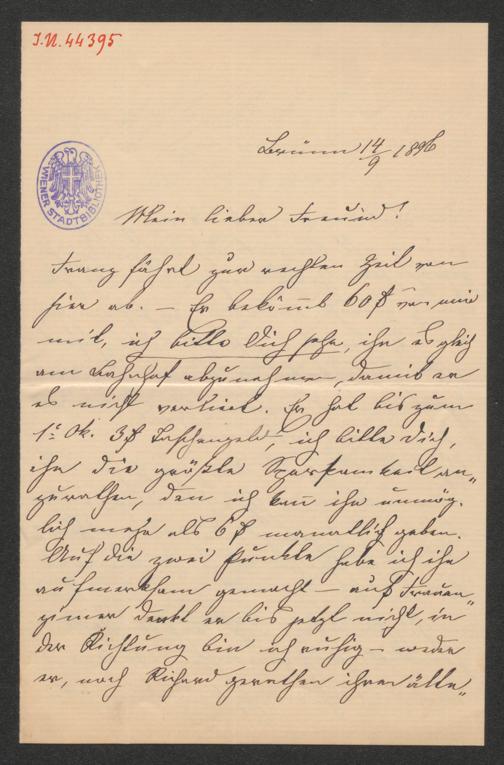 I.N. 44395
WIENER STADTBIBLIOTHEK
Brünn 14/9 1896
Mein lieber Freund!
Franz fährt zur rechten Zeit von
hier ab. – Er bekömmt 60 f von mir
mit, ich bitte Dich sehr, ihm es gleich
am Bahnhof abzunehmen, damit er
es nicht verliert. Er hat bis zum
1t Ok. 3 f Taschengeld, ich bitte Dich,
ihm die größte Sparsamkeit an„
zurathen, den ich kann ihm unmög.
lich mehr als 6 f monatlich geben.
Auf die zwei Punkte habe ich ihn
aufmerksam gemacht – auf Frauen„
zimer denkt er bis jetzt nicht, in
der Richtung bin ich ruhig – weder
er, noch Richard gerathen ihren älte„